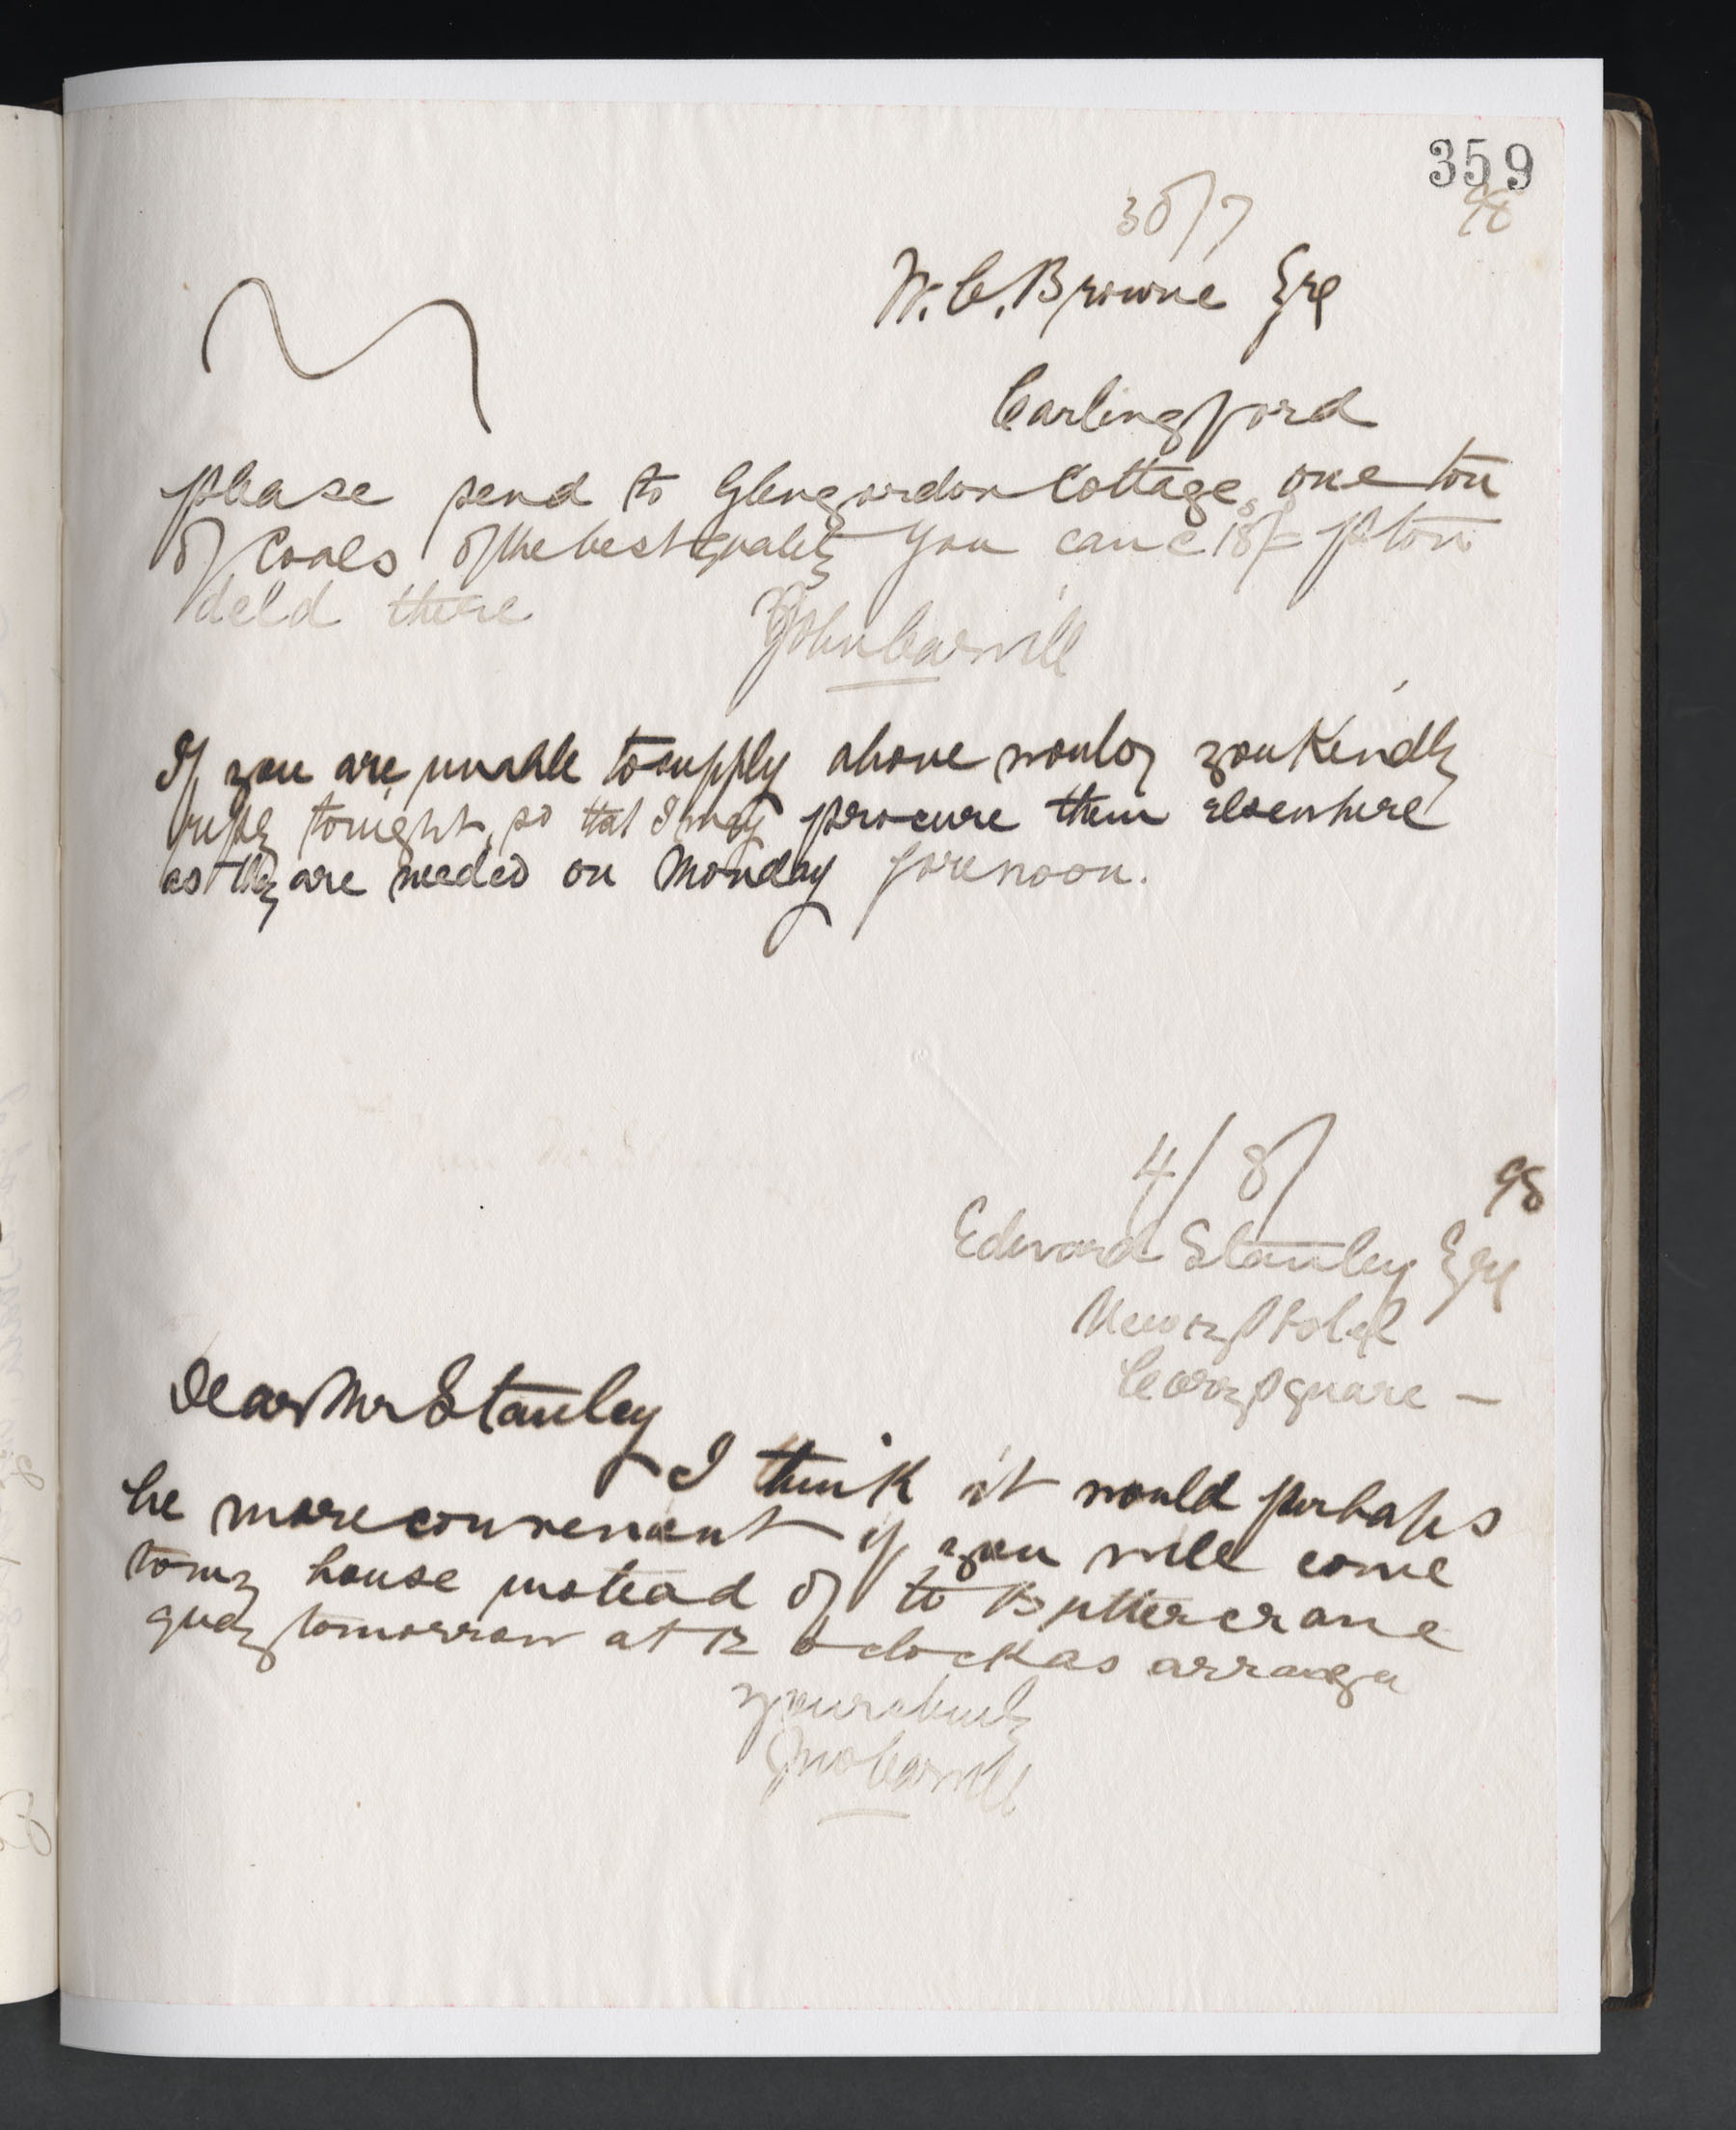 359
30/7 98
W. C. Browne Esq
Carlingford
please send to Glengordon Cottage one ton
of Coals of the best quality you can @ 18/= p ton
deld there
John Carvill
If you are unable to supply above would you Kindly
reply tonight, so that I may procure them elsewhere
as they are needed on Monday forenoon.
4/8/ 98
Edward Stanley Esq
Newry Hotel
Corry Square —
Dear Mr Stanley
I think it would perhaps
be more convenient if you will come
to my house instead of to Buttercrane
quay tomorrow at 12 o clock as arranged
yours truly
Jno Carvill